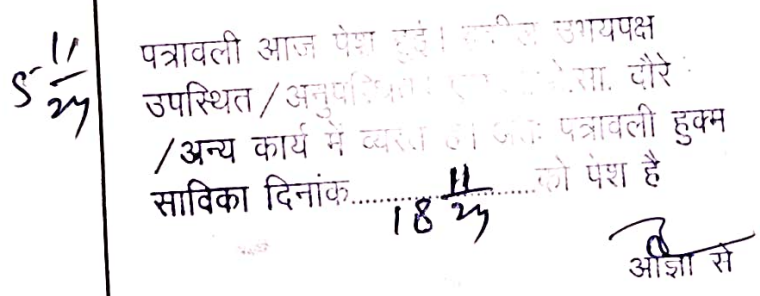 5 11/24
पत्रावली आज पेश हुई। वकील उभयपक्ष
उपस्थित / अनुपस्थित। सा. दौरे
/ अन्य कार्य में व्यस्त है। अतः पत्रावली हुक्म
साविका दिनांक..........18 11/24..........को पेश है
आज्ञा से